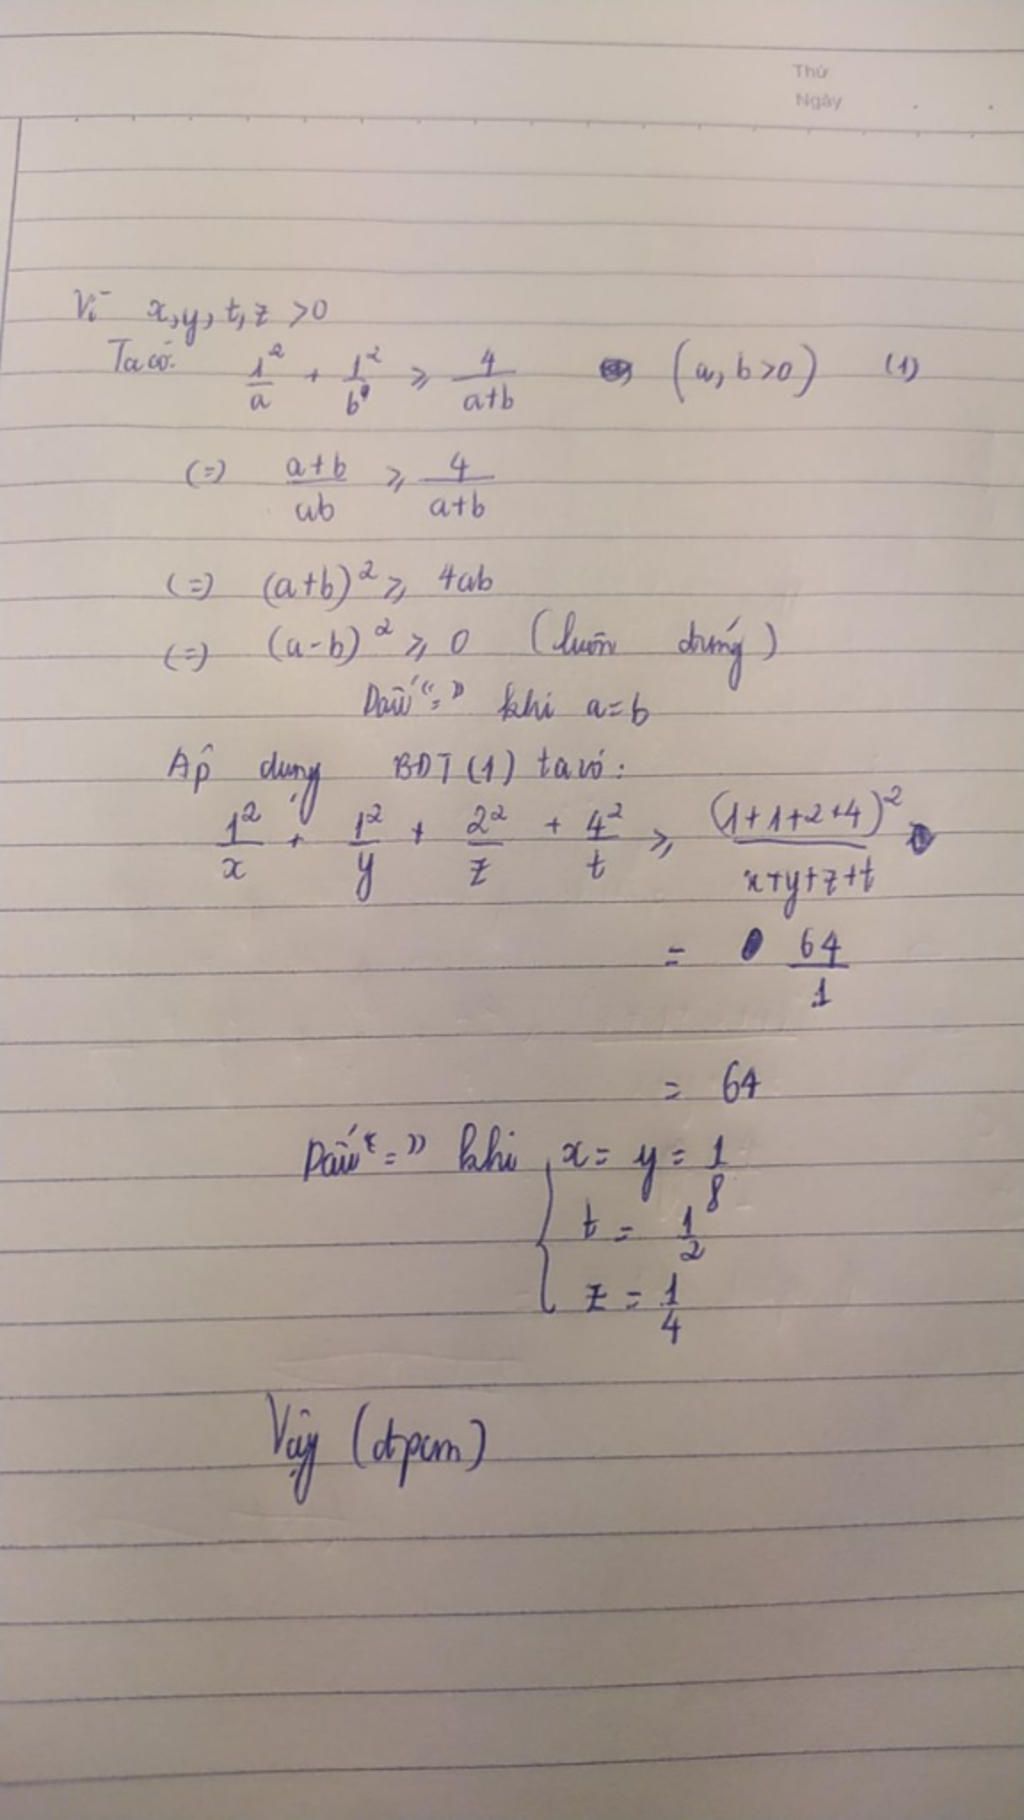 Thứ
Ngày
Vì x, y, t, z >0
Ta có: 1²/a + 1²/b ⩾ 4/(a+b) (a, b >0) (1)
(=) (a+b)/ab ⩾ 4/(a+b)
(=) (a+b)² ⩾ 4ab
(=) (a-b)² ⩾ 0 (luôn đúng)
Dấu "=" khi a=b
Áp dụng BĐT (1) ta có:
1²/x + 1²/y + 2²/z + 4²/t ⩾ (1+1+2+4)²/(x+y+z+t)
= 64/1
= 64
Dấu "=" khi { x = y = 1/8
t = 1/2
z = 1/4
Vậy (đpcm)